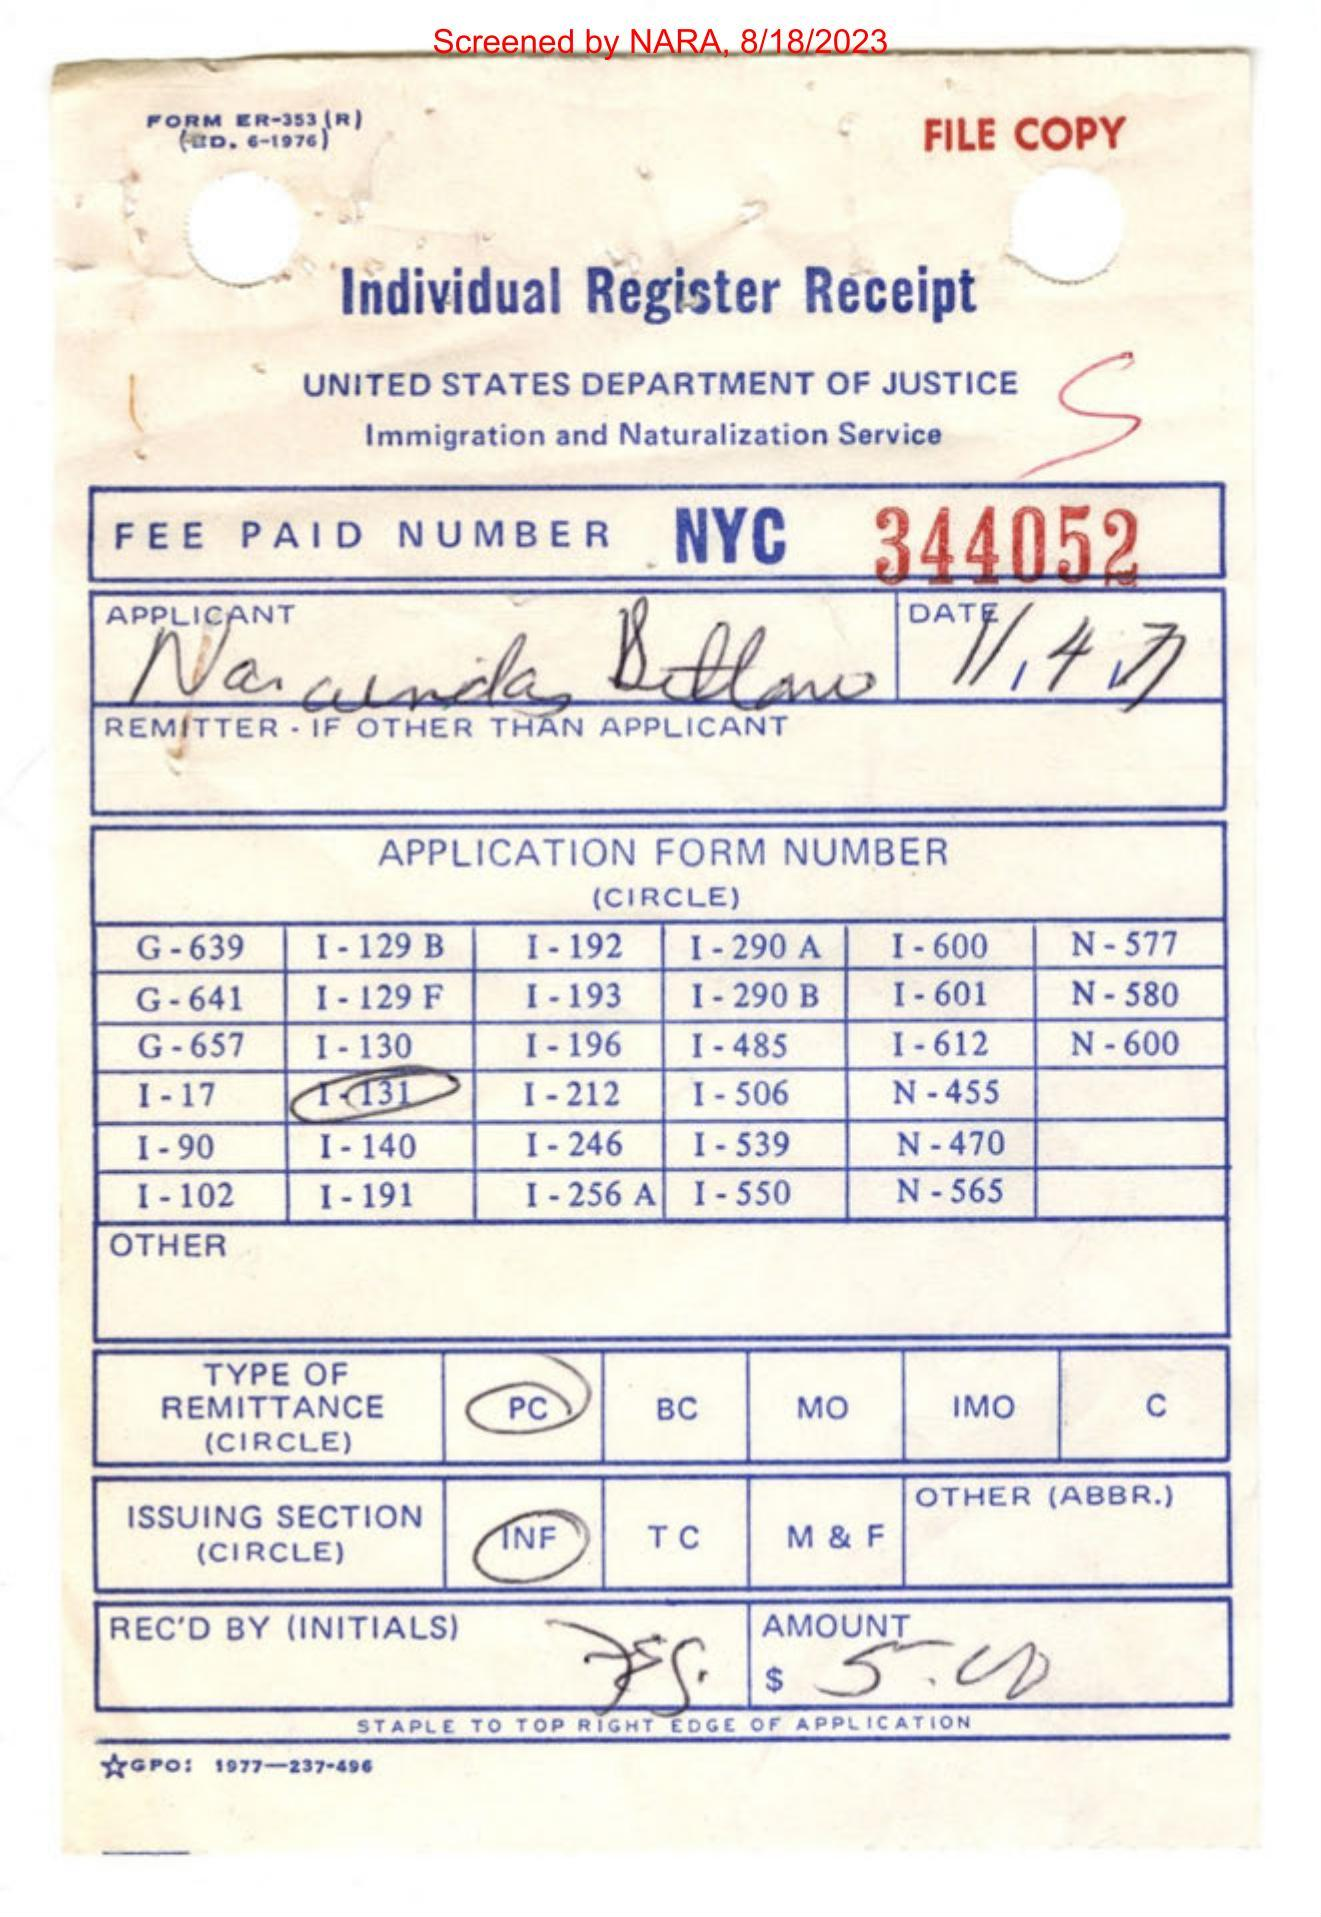 Screened by NARA, 8/18/2023
FORM ER-353 (R)
(ED. 6-1976)
FILE COPY
Individual Register Receipt
UNITED STATES DEPARTMENT OF JUSTICE
S
Immigration and Naturalization Service
FEE PAID NUMBER NYC 344052
APPLICANT
DATE
11, 4, 77
REMITTER - IF OTHER THAN APPLICANT
APPLICATION FORM NUMBER
(CIRCLE)
G - 639 I - 129 B I - 192 I - 290 A I - 600 N - 577
G - 641 I - 129 F I - 193 I - 290 B I - 601 N - 580
G - 657 I - 130 I - 196 I - 485 I - 612 N - 600
I - 17 I - 131 I - 212 I - 506 N - 455
I - 90 I - 140 I - 246 I - 539 N - 470
I - 102 I - 191 I - 256 A I - 550 N - 565
OTHER
TYPE OF
REMITTANCE
(CIRCLE)
PC BC MO IMO C
ISSUING SECTION
(CIRCLE)
INF T C M & F
OTHER (ABBR.)
REC'D BY (INITIALS)
AMOUNT
$ 5.00
STAPLE TO TOP RIGHT EDGE OF APPLICATION
☆GPO: 1977—237-496